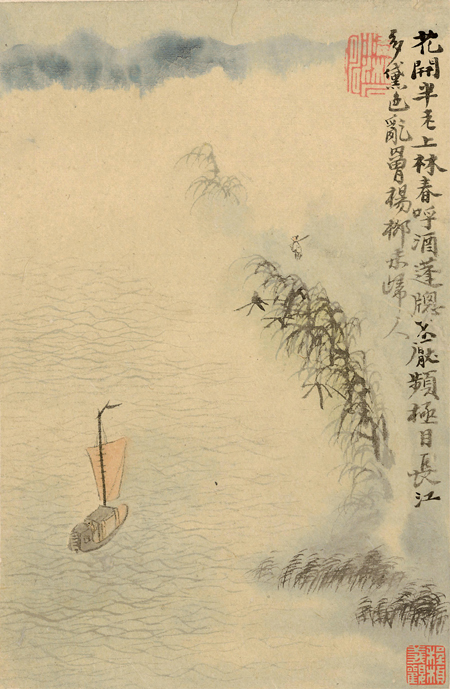 花開半老上林春呼酒蓬牕不厭頻極目長江
多黛色亂楊柳未歸人
程楨
義觀